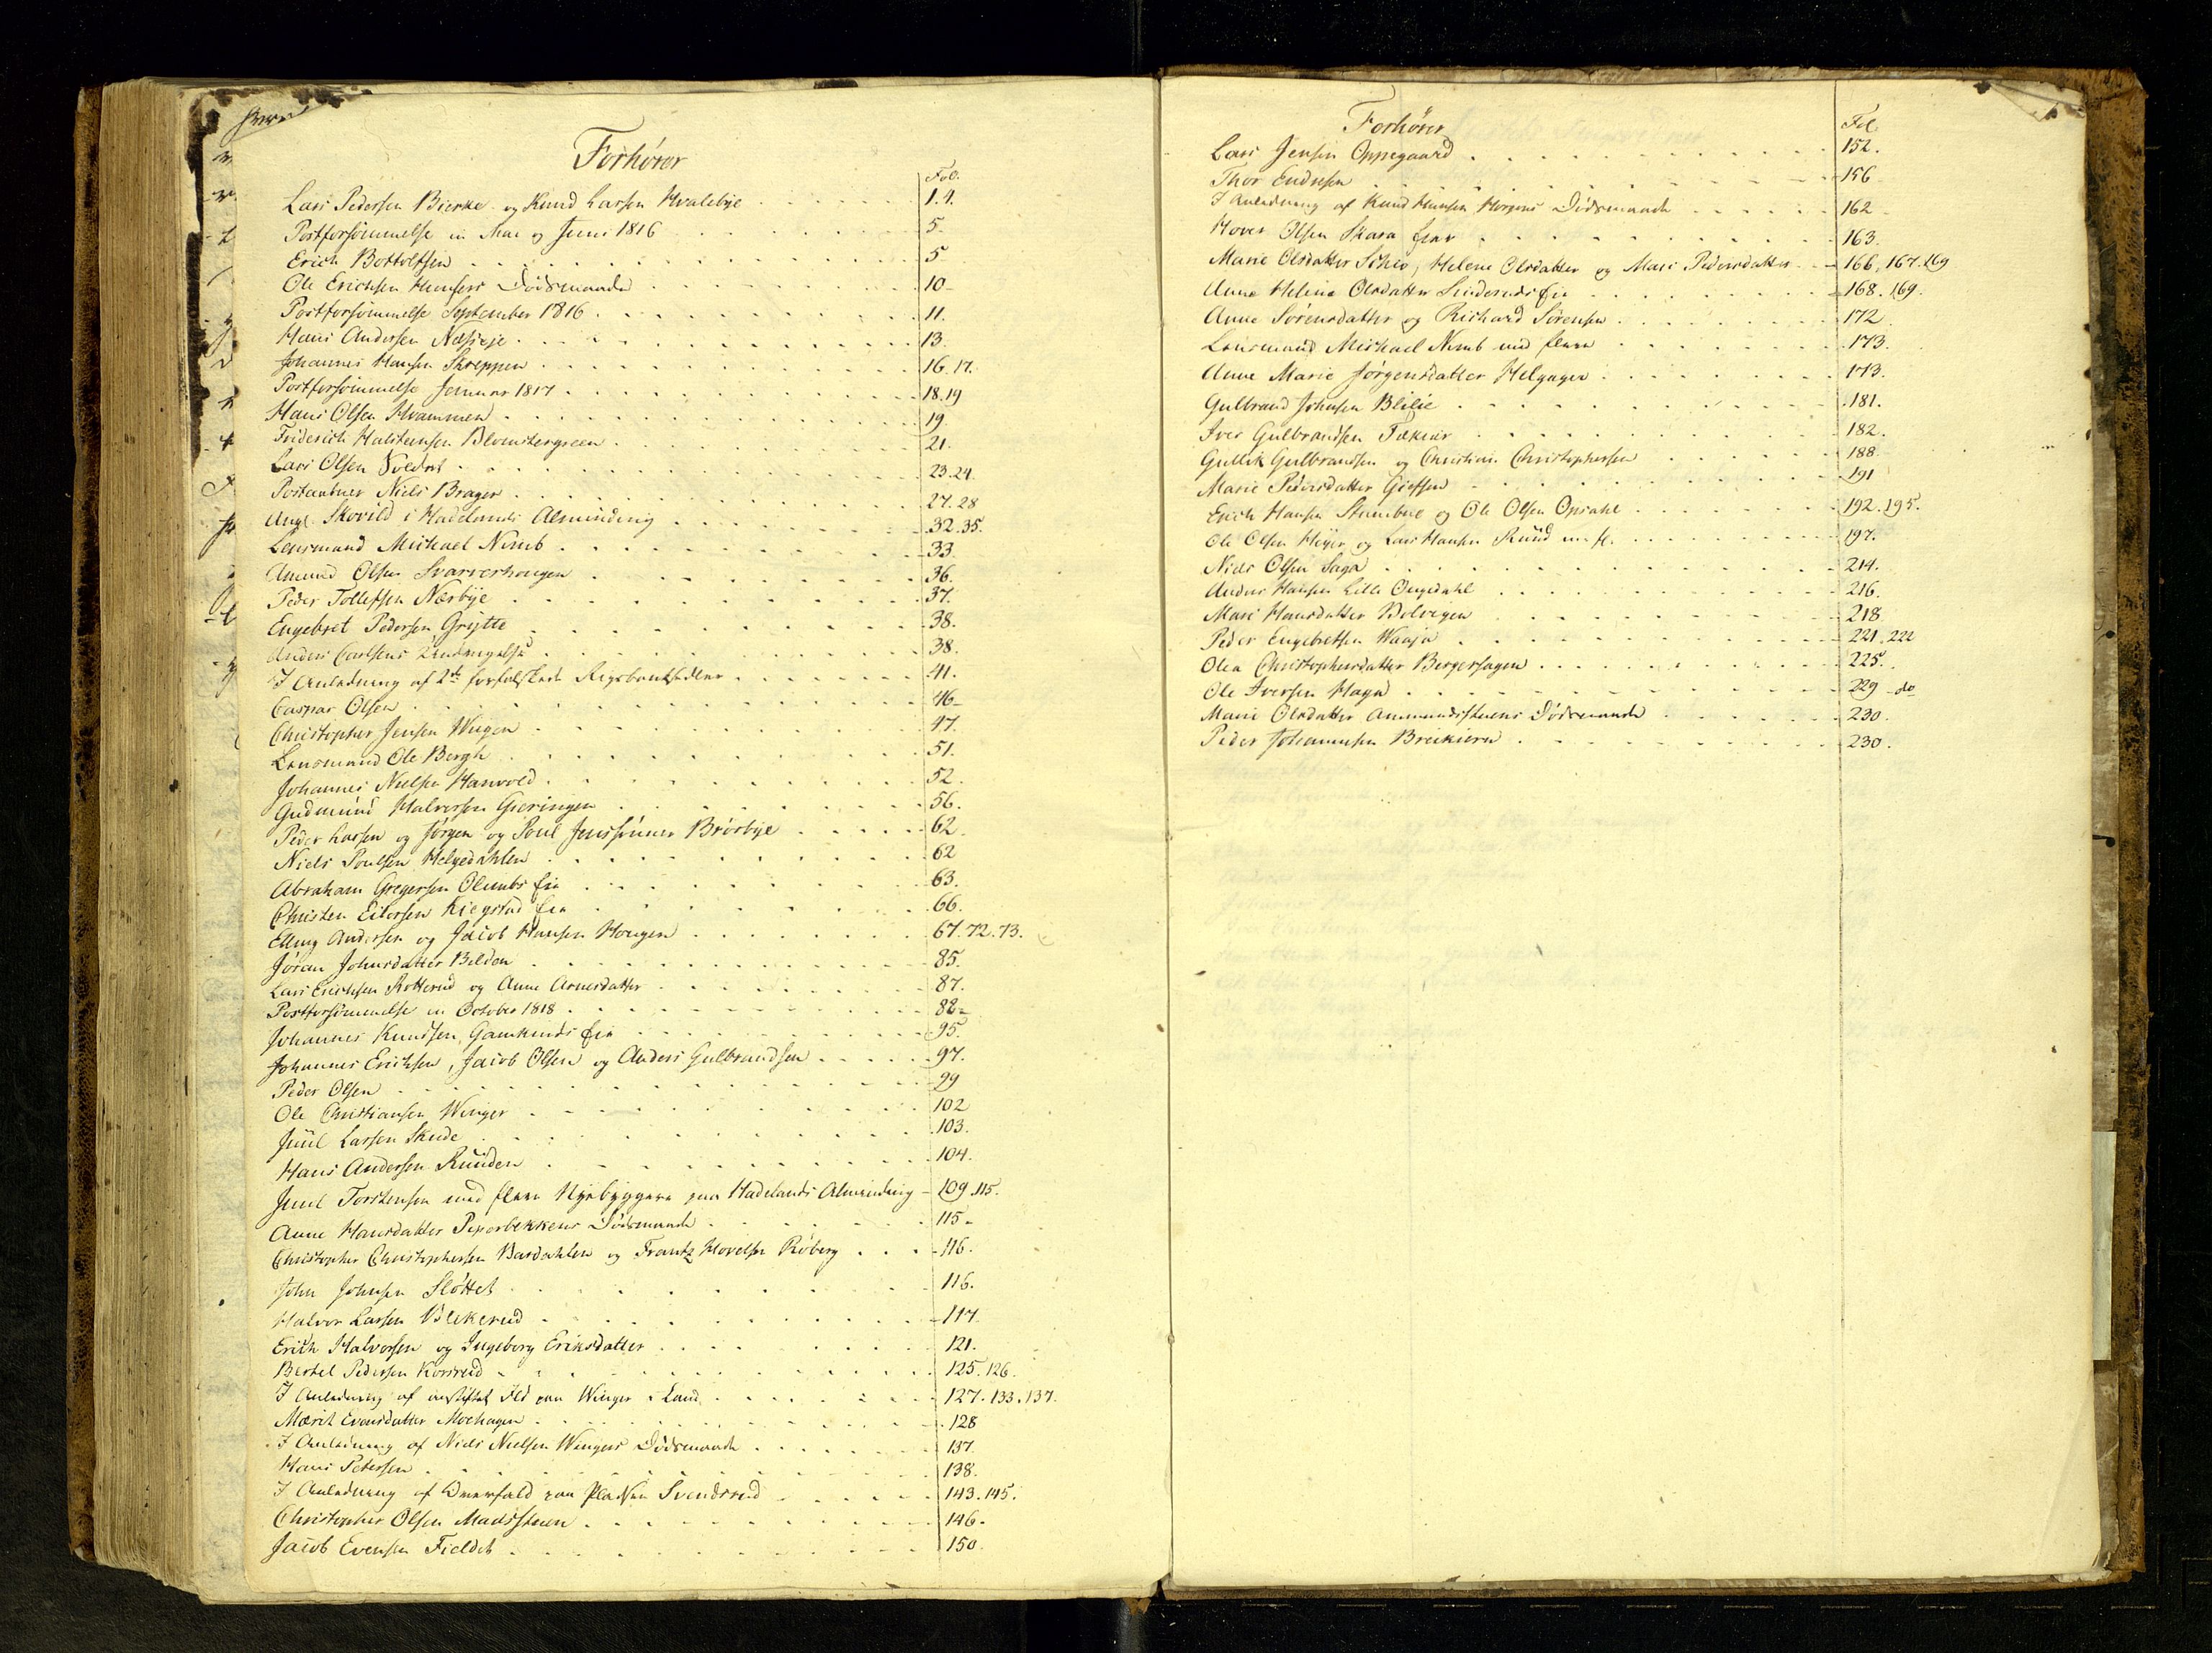 Forhører
Fol.
Lars Pedersen Bierke og Knud Larsen Hvalebye 1.4.
Postforsømmelse in Mai og Juni 1816 5.
Erich Bottolfsen 5
Ole Erichsen Hensers Dødsmaade 10
Postforsømmelse September 1816 11.
Hans Andersen Næsseje 13.
Johannes Hansen Skreppen 16.17.
Postforsømmelse Januar 1817 18.19
Hans Olsen Hvammen 19.
Friderich Halstensen Blomstergreen 21.
Lars Olsen Voldet 23.24.
Postaabner Niels Brager 27.28
Ang. Skovild i Hadelands Alminding 32.35.
Lensmand Michael Nimb 33.
Amund Olsen Svarverhougen 36.
Peder Tollefsen Næsbye 37.
Engebret Pedersen Grytte 38.
Anders Carlsens 38.
I Anledning af 2de forfalskede Rigsbanksedler 41.
Caspar Olsen 46
Christopher Jensen Wugen 47.
Lensmand Ole Bergh 51.
Johannes Nielsen Hanvold 52.
Gudmund Halvorsen Gieringen 56.
Peder Larsen og Jørgen og Poul Jenssønner Brørbye 62.
Niels Poulsen Helgedahlen 62
Abraham Gregersen Olimbs Eie 63.
Christen Eilersen Kiegstad Eie 66.
Elling Andersen og Jacob Hansen Hougen 67.72.73.
Jøran Johnsdatter Bilden 85.
Lars Erichsen Rotterud og Anne Arnesdatter 87.
Postforsømmelse in October 1818 88
Johannes Knudsen, Gamkinds Eie 95.
Johannes Erichsen, Jacob Olsen og Anders Gulbrandsen 97.
Peder Olsen 99
Ole Christiansen Winger 102
Juul Larsen Skude 103.
Hans Andersen Ruuden 104.
Juul Torstensen med flere Nyebyggere paa Hadelands Alminding 109.115.
Anne Hansdatter Peperbekkens Dødsmaade 115
Christopher Christophersen Bardahlen og Frantz Hovelsen Røberg 116.
John Johnsen Sløttet 116.
Halvor Larsen Blekerud 117.
Erich Halvorsen og Ingeborg Eriksdatter 121.
Bertel Pedersen Korsrud 125.126.
I Anledning af anstiftet Ild paa Winger i Land 127.133.137.
Marit Evensdatter Moehagen 128
I Anledning af Niels Nielsen Wingers Dødsmaade 137.
Hans Petersen 138.
I Anledning af Overfald paa Pladsen Svendsrud 143.145.
Christopher Olsen Madsstuen 146.
Jacob Evensen Fieldet 150.
Forhører
Fol.
Lars Jensen Oppegaard 152.
Thor Endresen 156
I Anledning af Knud Hansen Horgens Dødsmaade 162
Hover Olsen Skara Eier 163.
Marie Olsdatter Schee, Helene Olsdatter og Mari Pedersdatter 166.167.169
Anne Helene Olsdatter Sinderuds Eie 168.169.
Anne Sørensdatter og Richard Sørensen 172
Lensmand Michael Nimb med flere 173.
Anne Marie Jørgensdatter Helgager 173.
Gulbrand Johnsen Blilie 181.
Iver Gulbrandsen Tækier 182.
Gullik Gulbrandsen og Christian Christophersen 188.
Marie Pedersdatter Gieffsen 191
Erich Hansen Stumbue og Ole Olsen Opsahl 192.195.
Ole Olsen Heyer og Lars Hansen Ruud m. fl. 197.
Niels Olsen Saga 214.
Anders Hansen Lille Ougedahl 216.
Mari Hansdatter Bolvegen 218
Peder Engebretsen Waaja 221.222
Olea Christophersdatter Bergerhagen 225.
Ole Iversen Hagen 229 do
Marie Olsdatter Ammundsstuens Dødsmaade 230.
Peder Johannesen Breiskiern 230.